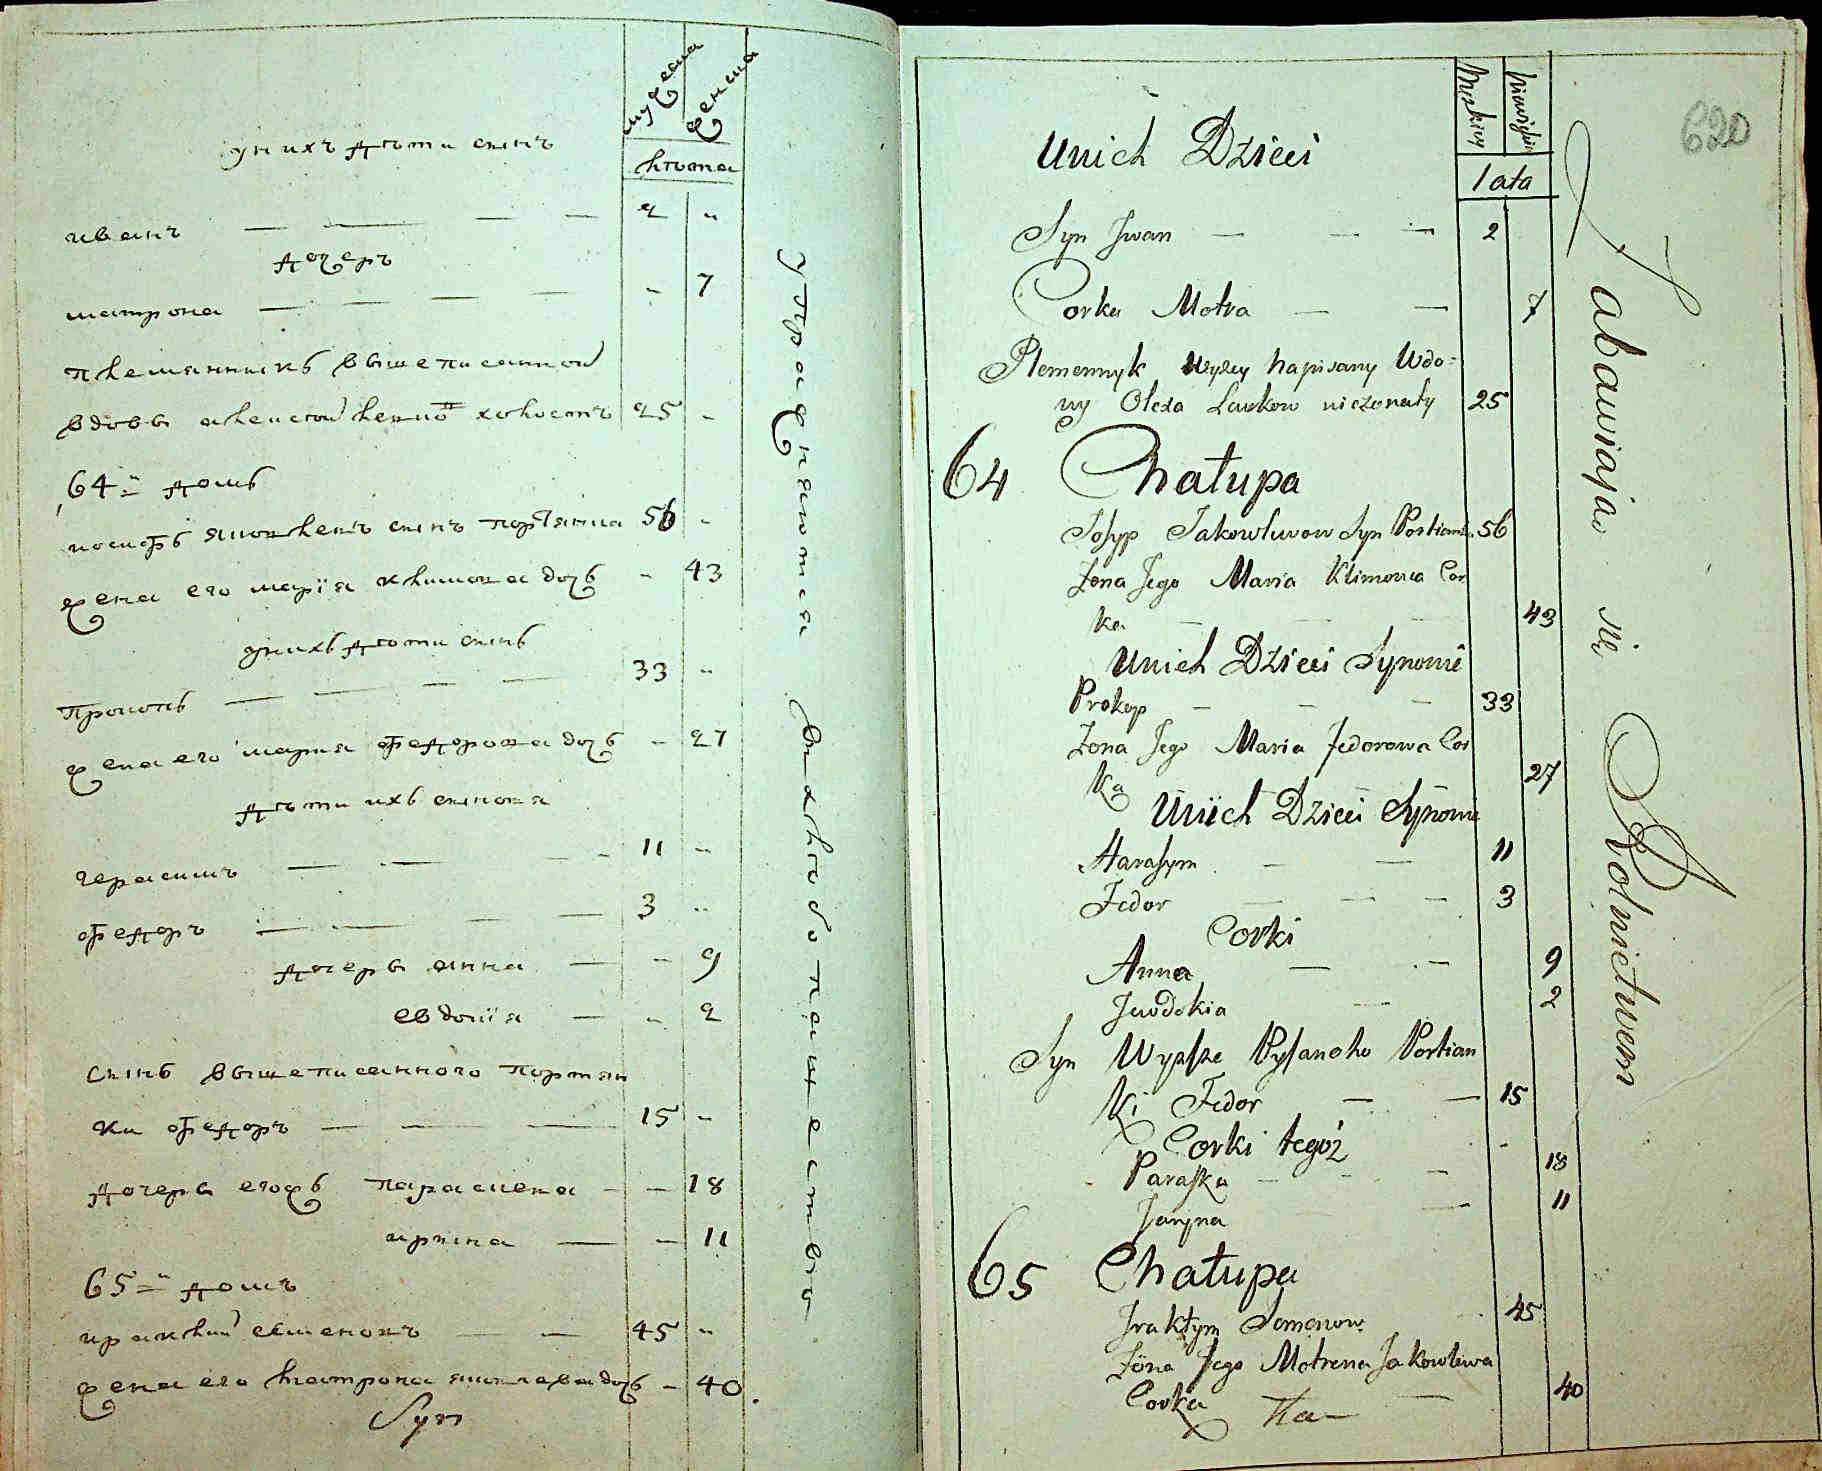 мужеска
женска
лѣта
у них дѣти сынъ
иванъ — — — — 2 "
дочерь
матрона — — — — - 7
племянникъ вышеписанной
вдовы алексей холостъ 25 -
64-й домъ
иосифъ яковлевъ сынъ портянка 56 -
жена его марія климова дочь - 43
у нихъ дѣти сынъ
Прокопъ — — — — 33 "
жена его мария федорова дочь - 27
дѣти ихъ сыновя
герасимъ — — — — 11 "
федоръ — — — — 3 "
дочеры анна — - 9
евдокія — " 2
сынъ вышеписанного портян
ки федоръ — — — 15 -
дочеры егожъ параскева - - 18
ирина — - 11
65-й домъ
ираклий семеновъ — — 45 "
жена его матрона яковлева дочь - 40.
Syn
упражняются в хлебопашество
620
Męskiey
Niewieściey
lata
Unich Dzieci
Syn Jwan — — — 2
Corka Motra — — 7
Plemennyk wyzey napisany Wdo=
wy Olexa Lewkow nieżonaty 25
64 Chałupa
Josyp Jakowluwow Syn Portianka 56
Żona Jego Maria Klimowa Cor
ka — — — 43
Unich Dzieci Synowe
Prokop — — — 33
Żona Jego Maria Fedorowa Cor
ka 27
Unich Dzieci Synowe
Harasym — — 11
Fedor — — — 3
Corki
Anna — — 9
Jewdokia — 2
Syn Wyzsze Pysanoho Portian
ki Fedor — — 15
Corki tegoż
Paraska — — — 18
Jaryna — 11
65 Chałupa
Jraktym Semenow 45
Żona Jego Motrena Jakowlewa
Corka — 40
Na—
Zabawiaja się Rolnictwem